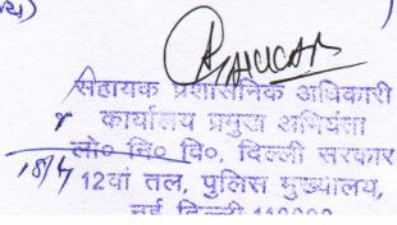 सहायक प्रशासनिक अधिकारी
कार्यालय प्रमुख अभियंता
लो० नि० वि०, दिल्ली सरकार
18/4 12वां तल, पुलिस मुख्यालय,
नई दिल्ली